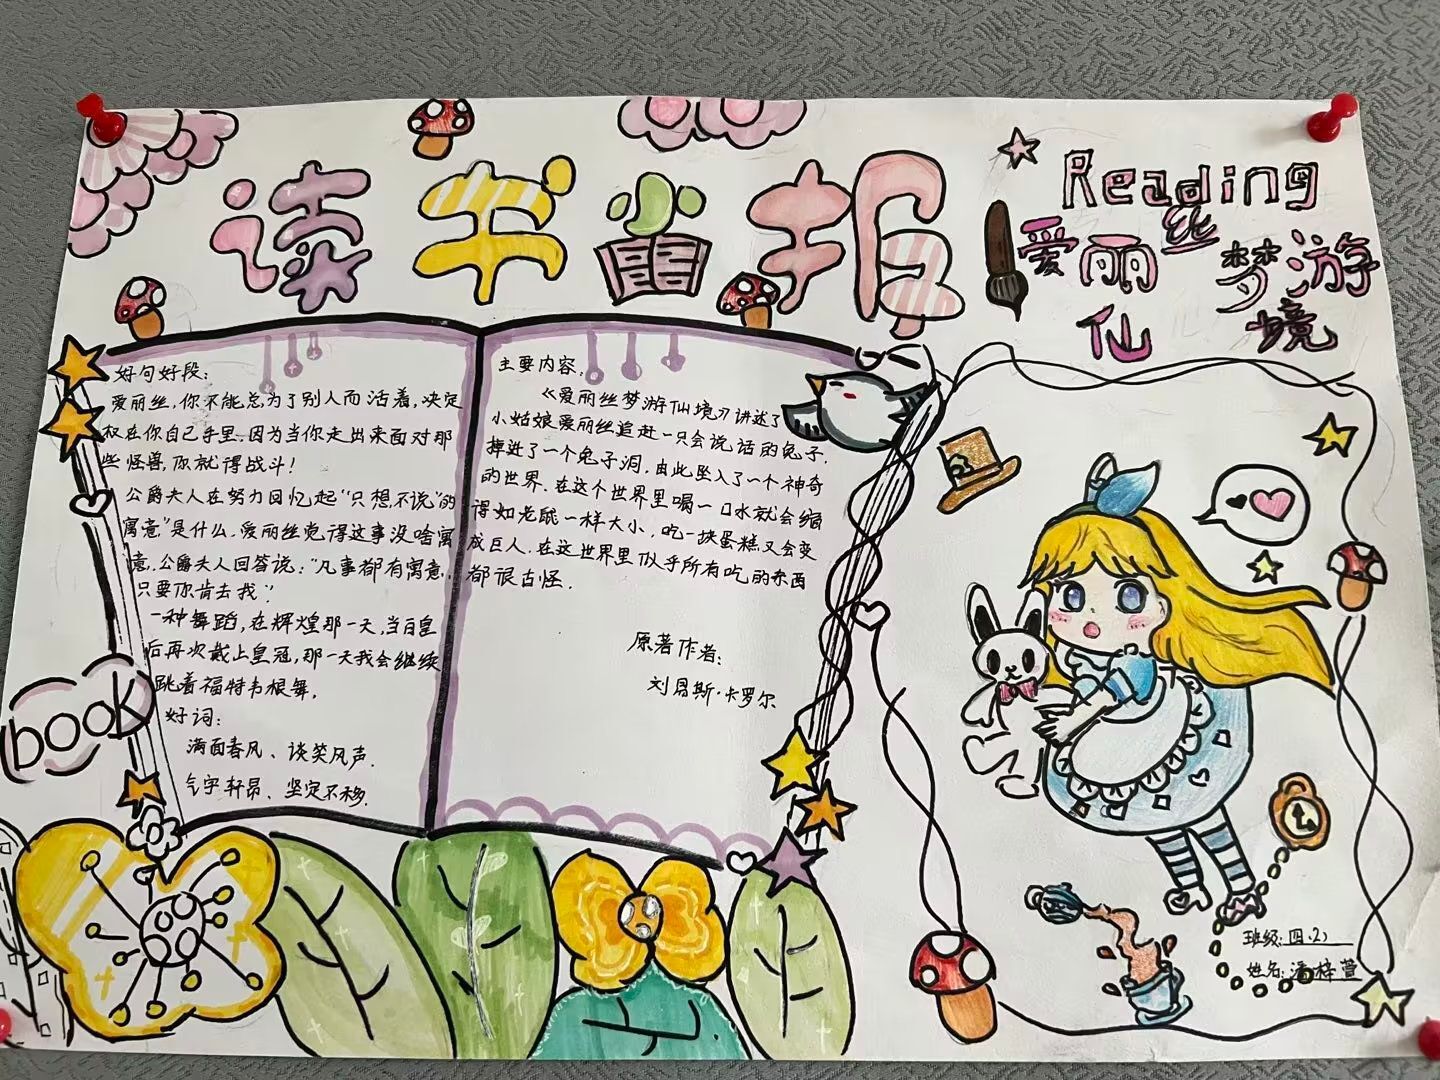 读书小报
Reading
爱丽丝梦游
仙境
好句好段：
爱丽丝，你不能总为了别人而活着，决定
权在你自己手里，因为当你走出来面对那
些怪兽，你就得战斗！
公爵夫人在努力回忆起“只想不说”的
寓意”是什么，爱丽丝觉得这事没啥寓
意，公爵夫人回答说：“凡事都有寓意，
只要你肯去找”
一种舞蹈，在辉煌那一天，当白皇
后再次戴上皇冠，那一天我会继续
跳着福特韦根舞。
好词：
满面春风、谈笑风声．
气宇轩昂、坚定不移．
主要内容：
《爱丽丝梦游仙境》讲述了
小姑娘爱丽丝追赶一只会说话的兔子，
掉进了一个兔子洞，由此坠入了一个神奇
的世界．在这个世界里喝一口水就会缩
得如老鼠一样大小，吃一块蛋糕又会变
成巨人，在这世界里似乎所有吃的东西
都很古怪．
原著作者：
刘易斯·卡罗尔
book
班级：四．2）
姓名：潘梓萱